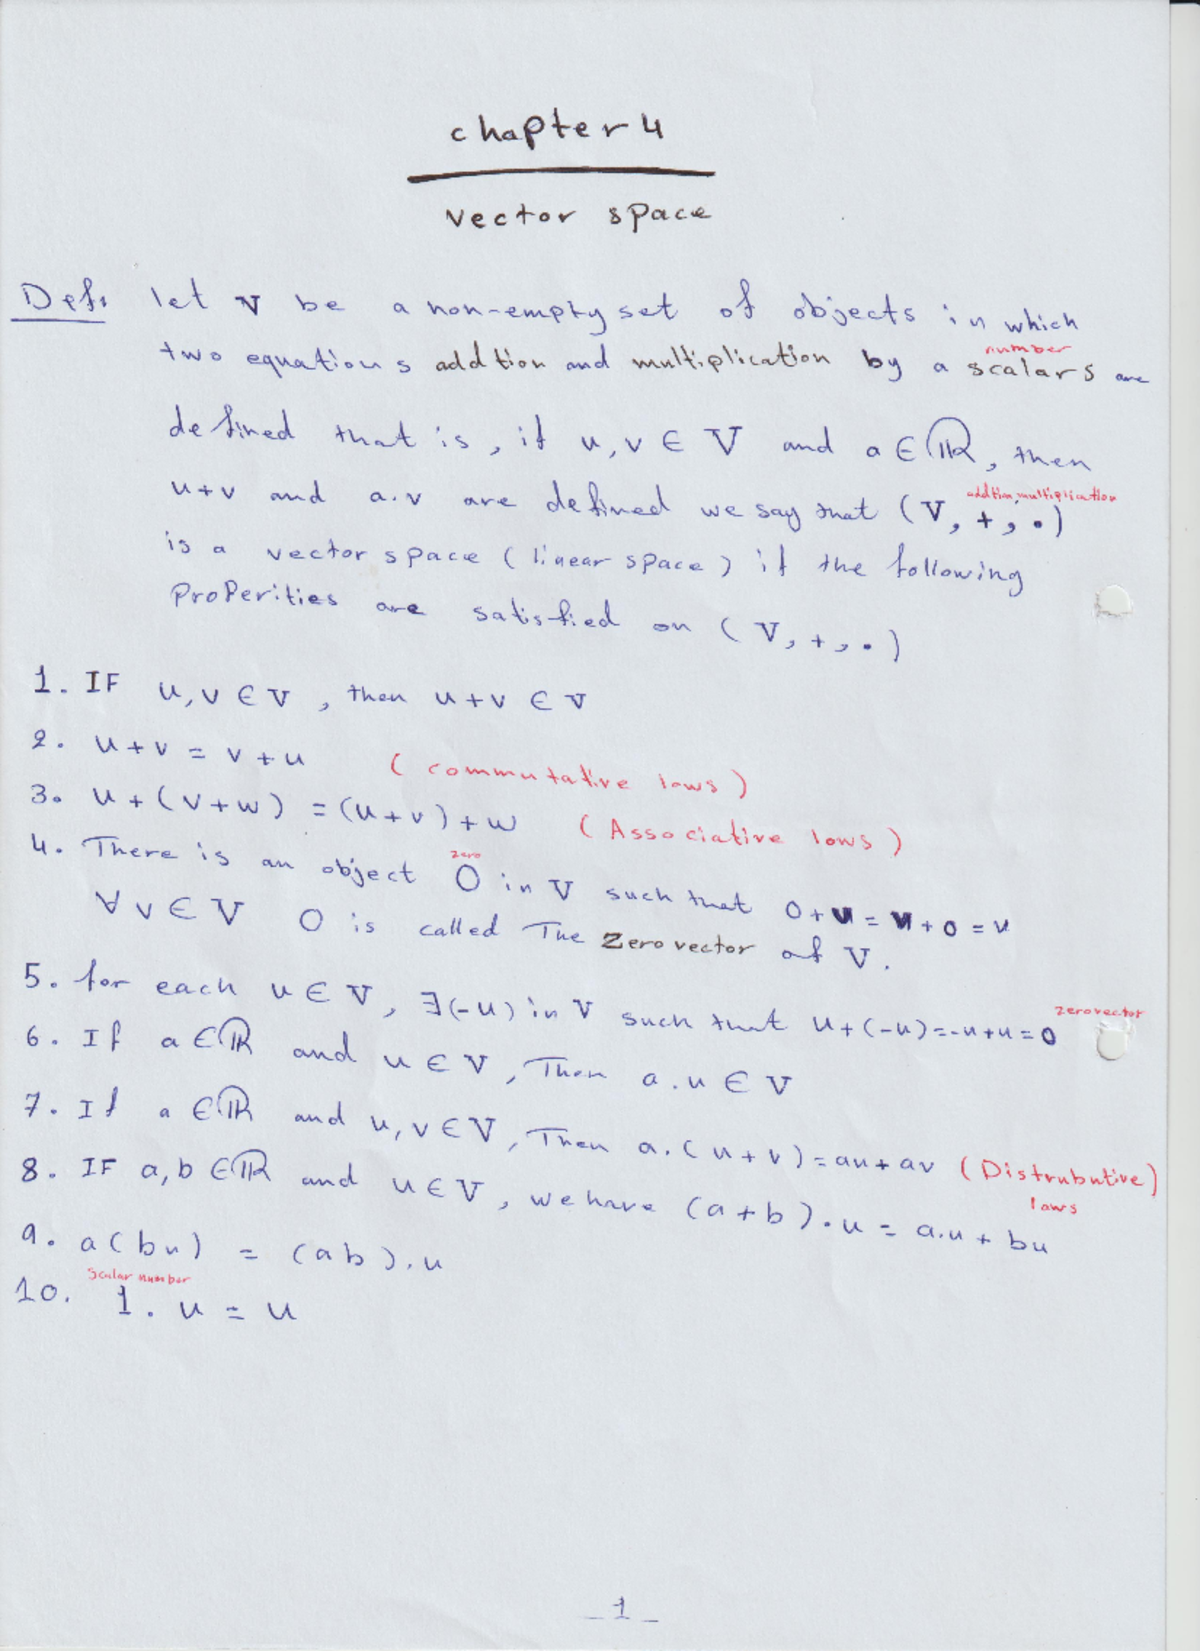 chapter 4
vector space
Def: let V be a non-empty set of objects in which
number
two equations addtion and multiplication by a scalars are
defined that is, if u,v ∈ V and a ∈ ℝ, then
addtion, multiplication
u+v and a.v are defined we say that (V, +, •)
is a vector space (linear space) if the following
ProPerities are satisfied on (V, +, •)
1. IF u,v ∈ V, then u+v ∈ V
2. u+v = v+u (commutative laws)
3. u+(v+w) = (u+v)+w (Associative lows)
zero
4. There is an object O in V such that 0+u = u+0 = u
∀ v ∈ V O is called The Zero vector of V.
5. for each u ∈ V, ∃(-u) in V such that u+(-u)=-u+u=0
zero vector
6. If a ∈ ℝ and u ∈ V, Then a.u ∈ V
7. If a ∈ ℝ and u,v ∈ V, Then a.(u+v)=au+av (Distrubutive)
laws
8. IF a,b ∈ ℝ and u ∈ V, we have (a+b).u = a.u + bu
9. a(bu) = (ab).u
scalar number
10. 1.u = u
_ 1 _